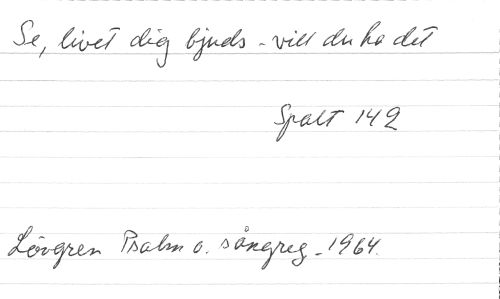 Se, livet dig bjuds - vill du ha det
Spalt 142
Lövgren Psalm o. sångreg. 1964.